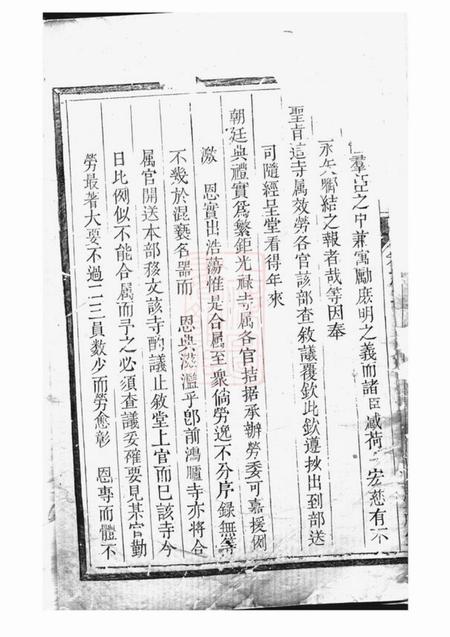 羣活之中兼寓勵庶明之義而諸臣咸荷 宏慈有不
永矢啣結之報者哉等因奉
聖旨這寺属效勞各官該部查敘議覆欽此欽遵抄出到部送
司隨經呈堂看得年來
朝廷典禮實爲繁鉅光祿寺属各官拮据承辦勞委可嘉援例
激 恩實出浩蕩惟是合属至衆倘勞逸不分序錄無等
不幾於混褻名器而 恩典濫乎卽前鴻臚寺亦將合
属官開送本部移文該寺酌議止敘堂上官而巳該寺今
日比例似不能合属而予之必須查議妥確要見某官勤
勞最著大要不過二三員數少而勞愈彰 恩專而體不